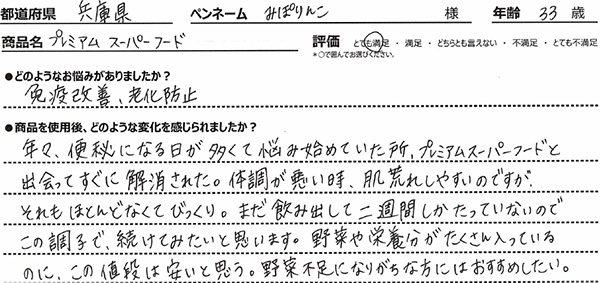 都道府県 兵庫県 ペンネーム みぽりんこ 様 年齢 33 歳
商品名 プレミアム スーパーフード 評価 とても満足 ・ 満足 ・ どちらとも言えない ・ 不満足 ・ とても不満足
*○で囲んでお選びください。
●どのようなお悩みがありましたか?
免疫改善、老化防止
●商品を使用後、どのような変化を感じられましたか?
年々、便秘になる日が多くて悩み始めていた所、プレミアムスーパーフードと
出会ってすぐに解消された。体調が悪い時、肌荒れしやすいのですが、
それもほとんどなくてびっくり。まだ飲み出して二週間しかたっていないので
この調子で、続けてみたいと思います。野菜や栄養分がたくさん入っている
のに、この値段は安いと思う。野菜不足になりがちな方にはおすすめしたい。